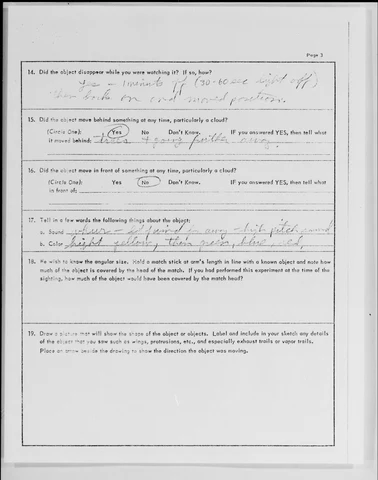 Page 3
14. Did the object disappear while you were watching it? If so, how?
Yes - 1 minute off (30-60 sec right off)
then back on and moved position.
15. Did the object move behind something at any time, particularly a cloud?
(Circle One): Yes No Don't Know. IF you answered YES, then tell what
it moved behind: trees + going further away.
16. Did the object move in front of something at any time, particularly a cloud?
(Circle One): Yes No Don't Know. IF you answered YES, then tell what
in front of:
17. Tell in a few words the following things about the object:
a. Sound away - high pitch sound
b. Color bright yellow, then green, blue, red,
18. We wish to know the angular size. Hold a match stick at arm's length in line with a known object and note how
much of the object is covered by the head of the match. If you had performed this experiment at the time of the
sighting, how much of the object would have been covered by the match head?
19. Draw a picture that will show the shape of the object or objects. Label and include in your sketch any details
of the object that you saw such as wings, protrusions, etc., and especially exhaust trails or vapor trails.
Place an arrow beside the drawing to show the direction the object was moving.